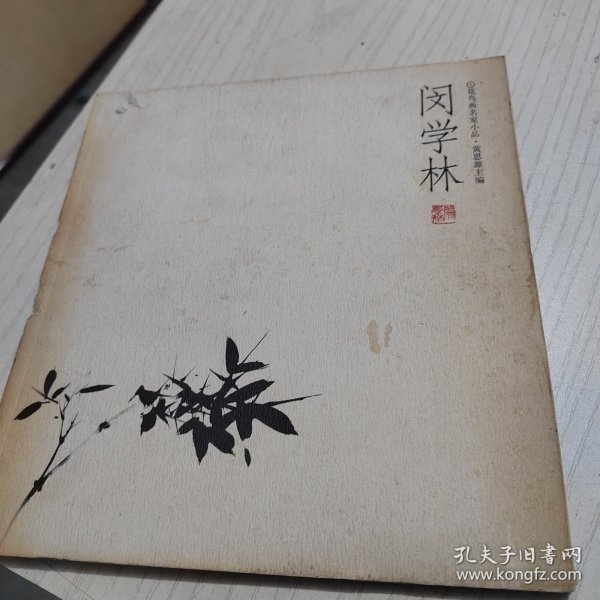 花鸟画名家小品·黄思源主编
闵学林
孔夫子旧書网
www.kongfz.com